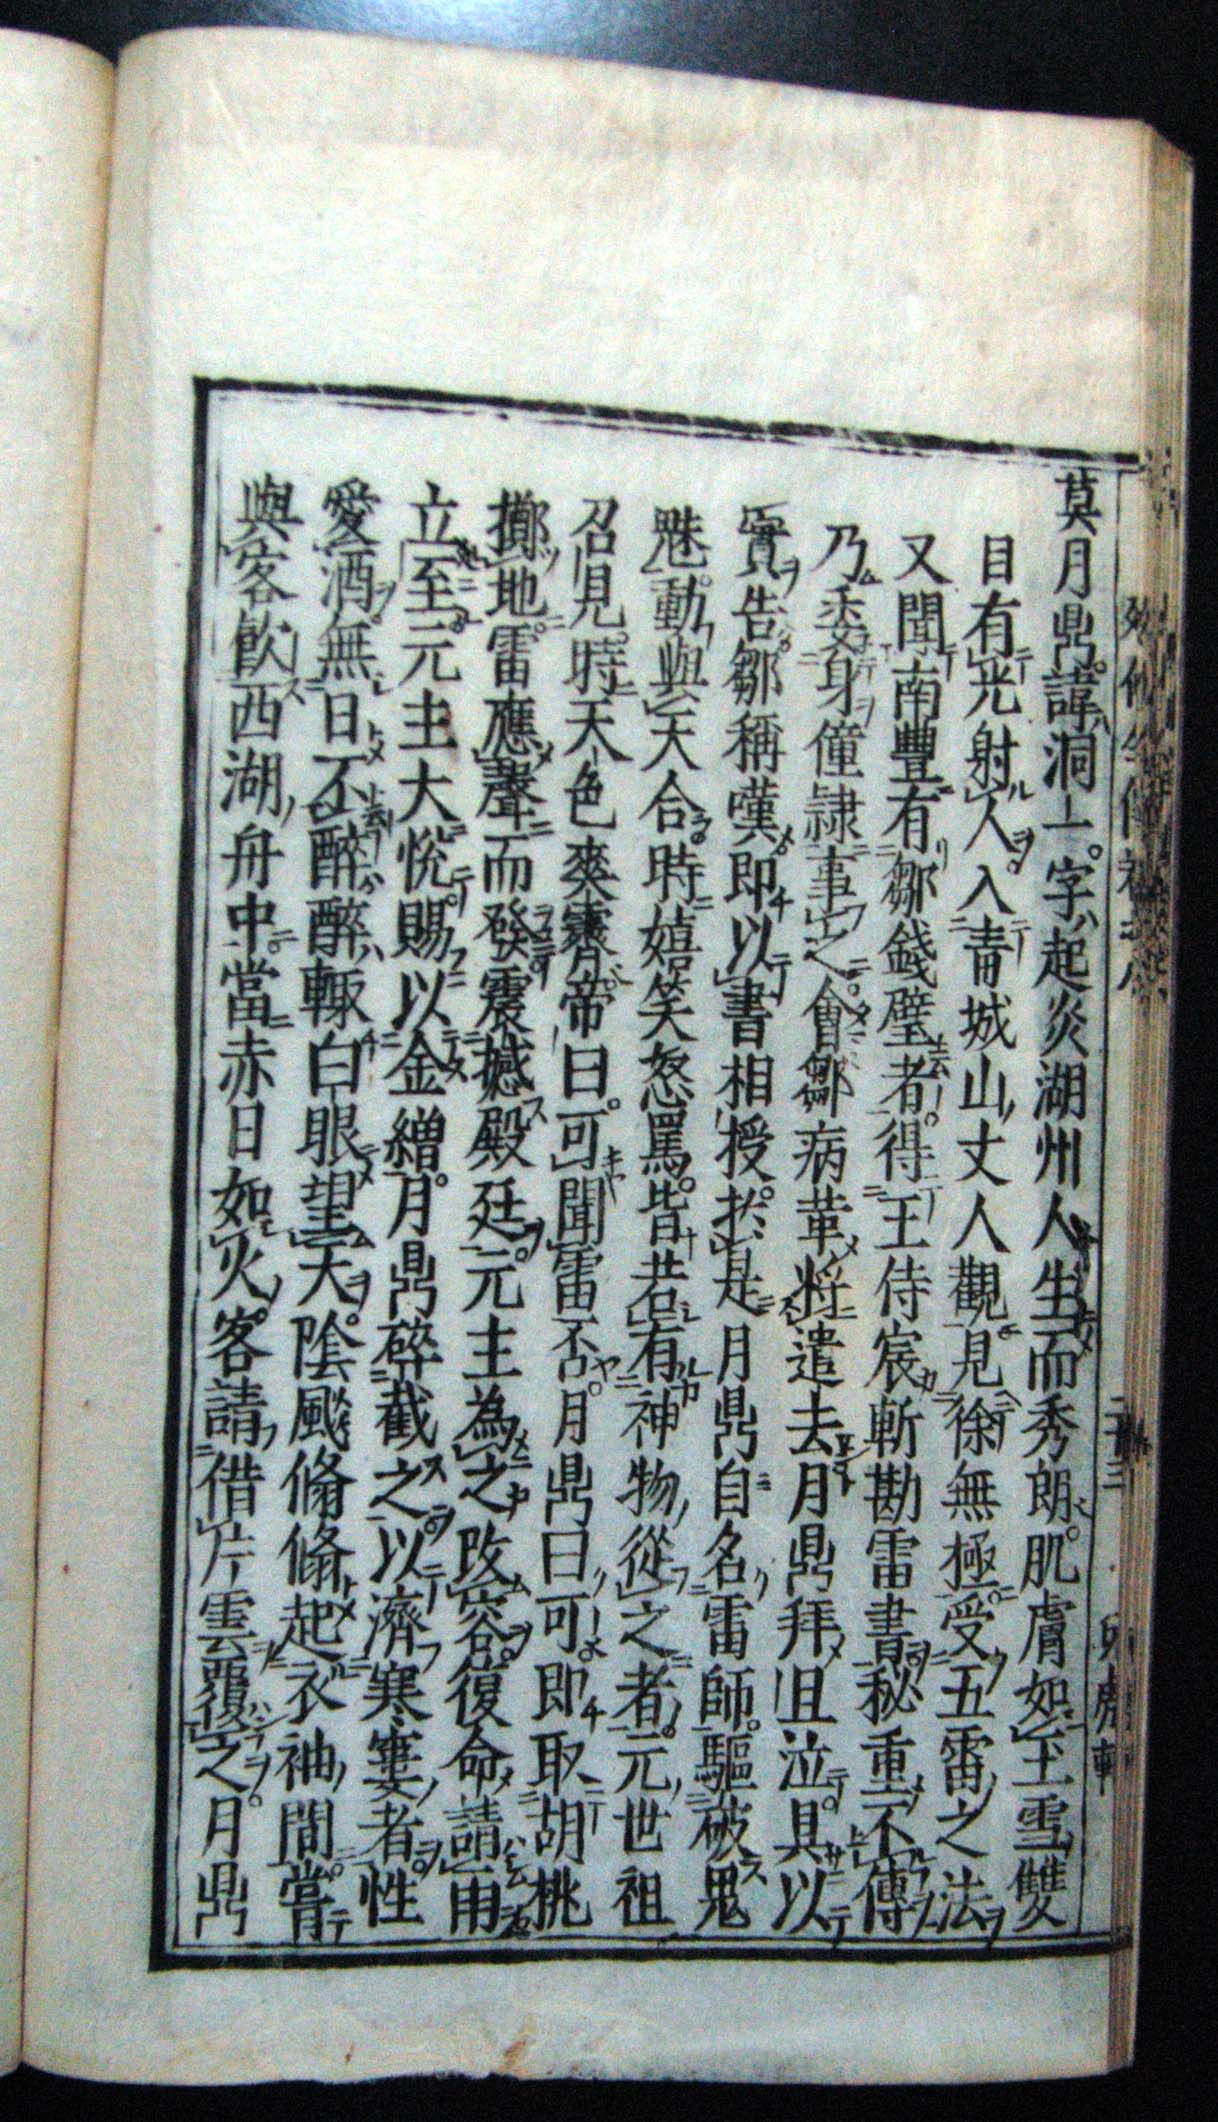 莫月鼎。諱洞一。字起炎湖州人生而秀朗。肌膚如玉雪雙
目有光射人。入青城山丈人觀見徐無極。受五雷之法
又聞南豐有鄒鐵壁者。得王侍宸斬勘雷書秘重不傳
乃委身僮隷事之。會鄒病革將遣去月鼎拜且泣。具以
實告。鄒稱嘆即以書相授。於是月鼎自名雷師。驅破鬼
魅。動與天合。時嬉笑怒罵。皆若有神物從之者。元世祖
召見。時天色爽霽。帝曰。可聞雷否。月鼎曰可。即取胡桃
擲地。雷應聲而發。震撼殿廷。元主為之改容。復命請雨
立至元主大悅。賜以金繒。月鼎碎截之以濟寒窶者。性
愛酒。無日不醉醉輙白眼望天。陰風翛翛起衣袖間。嘗
與客飲西湖舟中。當赤日如火。客請借片雲覆之。月鼎
二十三